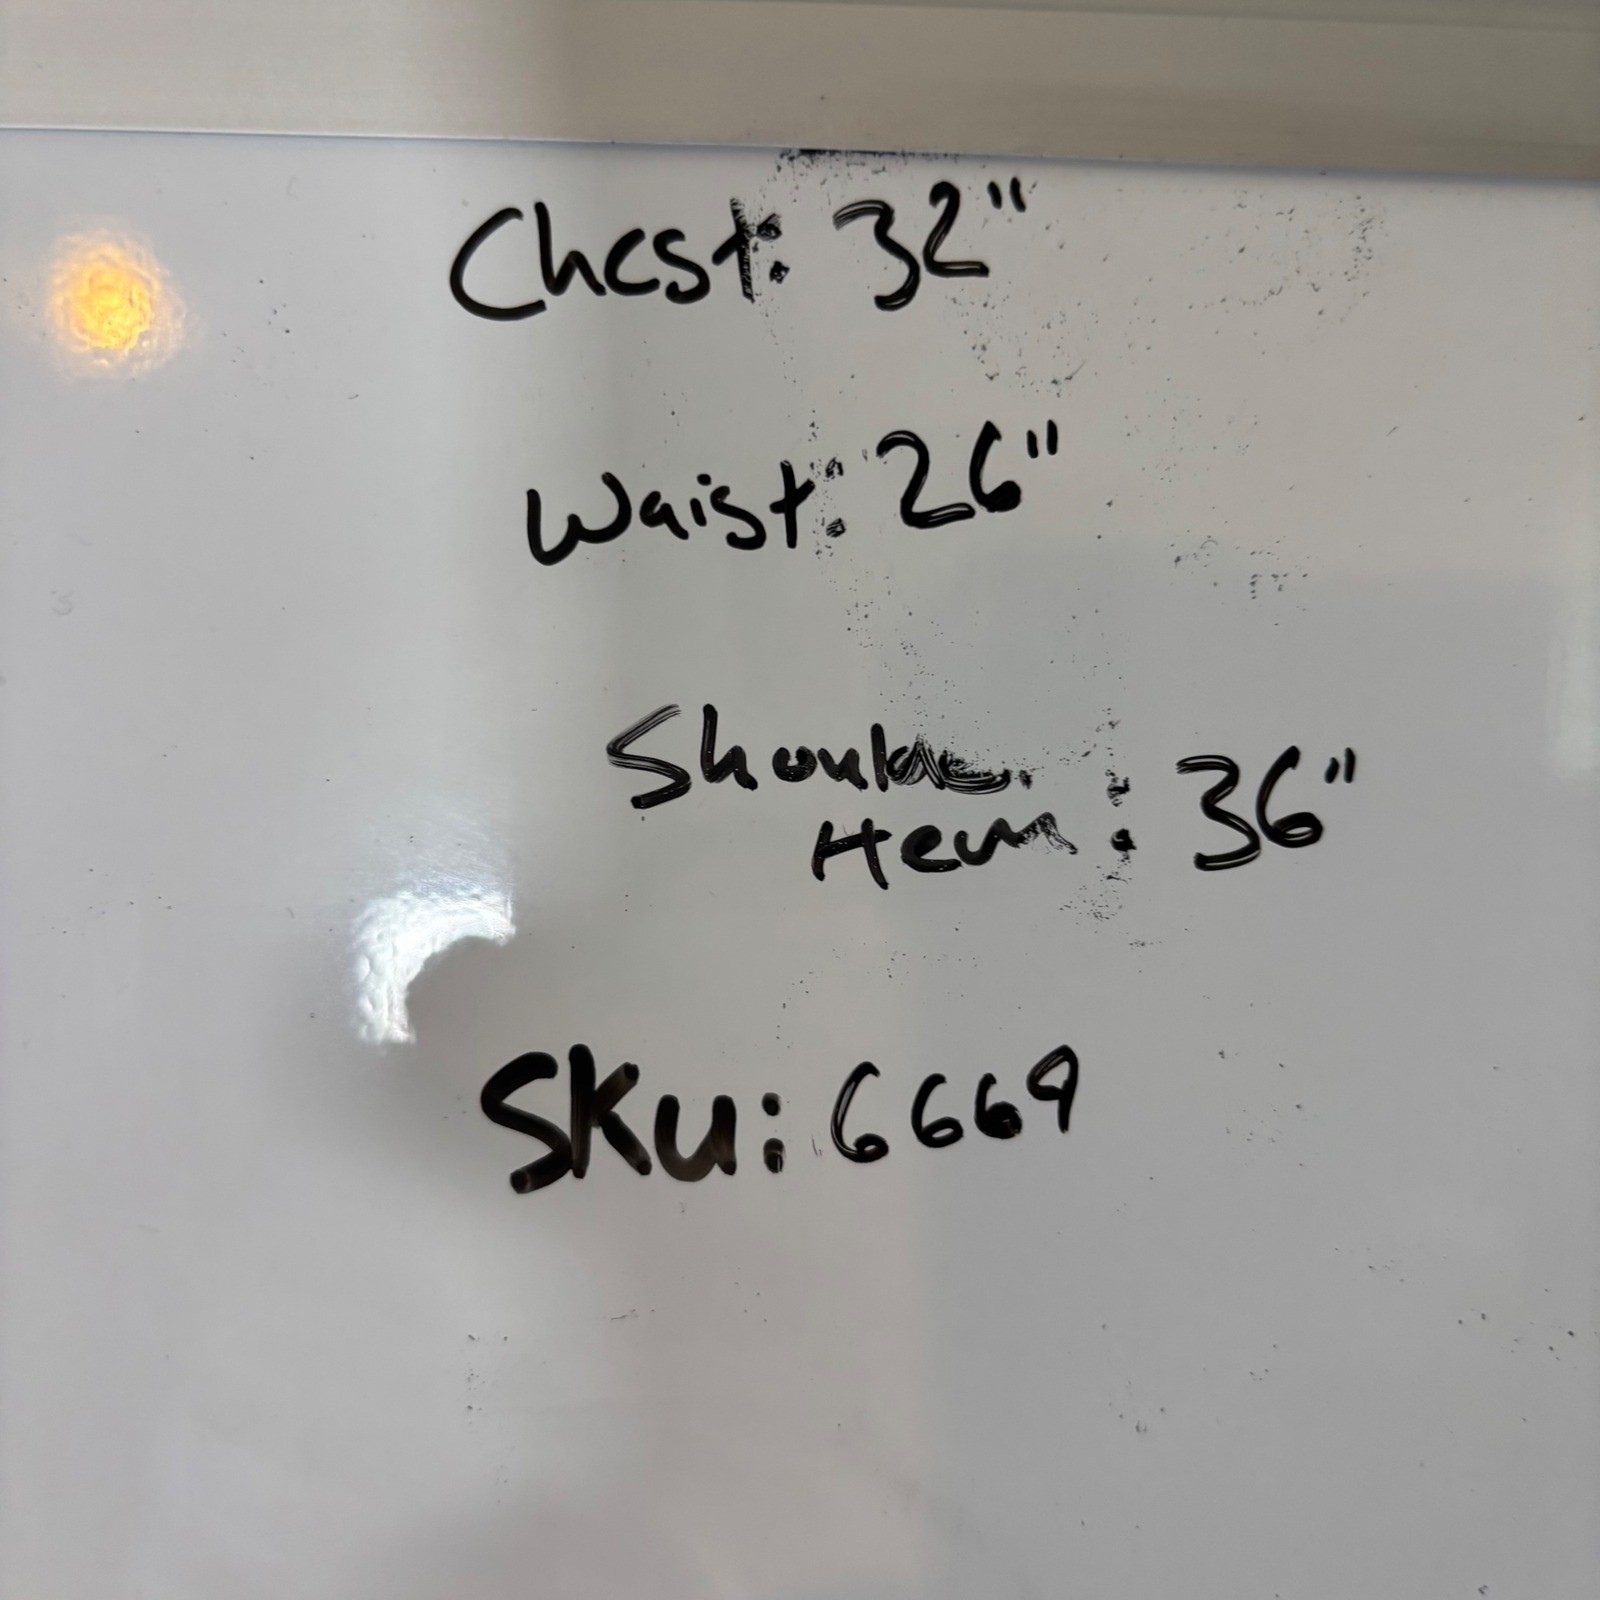 Chest: 32"
Waist: 26"
Shoulder
Hem: 36"
SKU: 6669